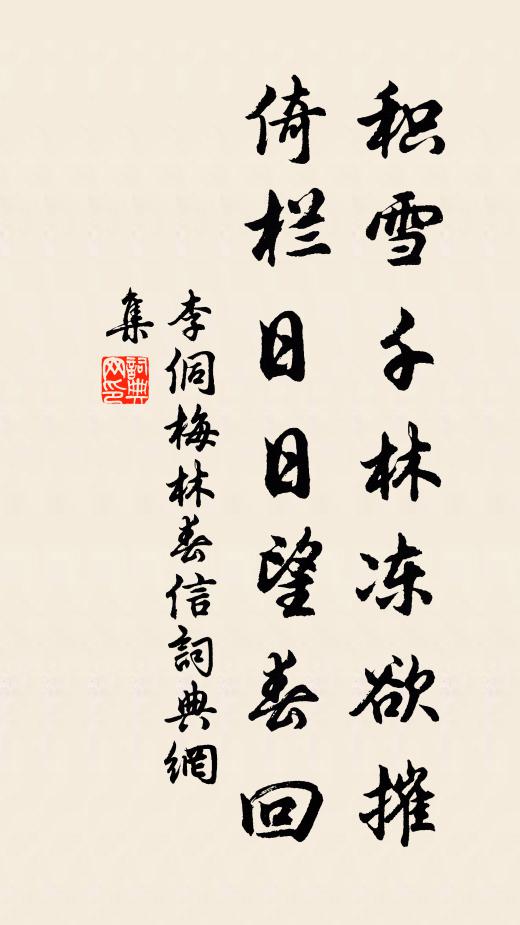 积雪千林冻欲摧
倚栏日日望春回
李侗梅林春信詞典網
集
詞典網印